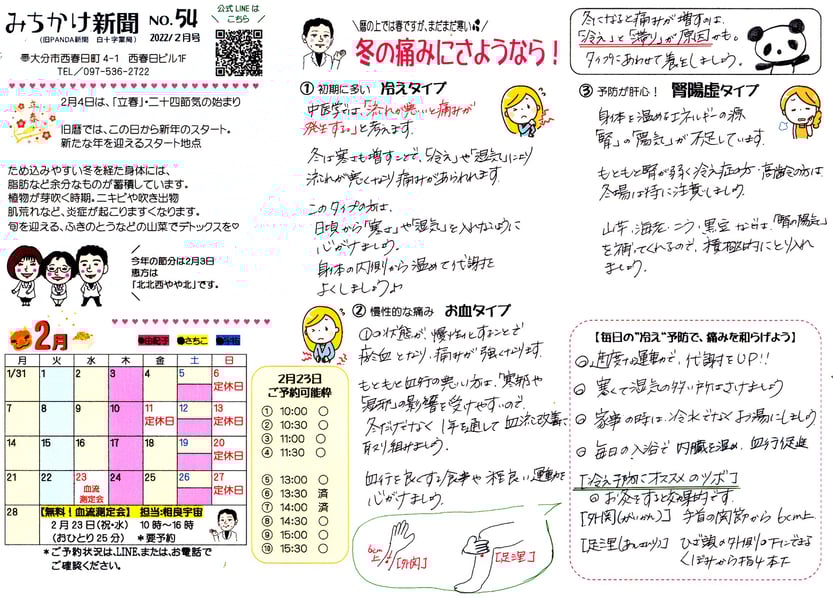 みちかけ新聞
(旧PANDA新聞 白十字薬局)
NO.54
2022/2月号
公式LINEは
こちら
夢大分市西春日町4-1 西春日ビル1F
TEL／097-536-2722
2月4日は、「立春」・二十四節気の始まり
旧暦では、この日から新年のスタート。
新たな年を迎えるスタート地点
ため込みやすい冬を経た身体には、
脂肪など余分なものが蓄積しています。
植物が芽吹く時期。ニキビや吹き出物
肌荒れなど、炎症が起こりますくなります。
旬を迎える、ふきのとうなどの山菜でデトックスを♡
今年の節分は2月3日
恵方は
「北北西やや北」です。
2月
●由紀子 ●さちこ ●宇宙
月 火 水 木 金 土 日
1/31 1 2 3 4 5 6
定休日
7 8 9 10 11 12 13
定休日 定休日
14 15 16 17 18 19 20
定休日
21 22 23 24 25 26 27
血流
測定会
定休日
28
【無料！血流測定会】 担当:相良宇宙
2月23日(祝・水) 10時～16時
(おひとり25分) ＊要予約
＊ご予約状況は、LINE、または、お電話で
ご確認ください。
2月23日
ご予約可能枠
① 10:00 ○
② 10:30 ○
③ 11:00 ○
④ 11:30 ○
⑤ 13:00 ○
⑥ 13:30 済
⑦ 14:00 済
⑧ 14:30 ○
⑨ 15:00 ○
⑩ 15:30 ○
暦の上では春ですが、まだまだ寒い
冬の痛みにさようなら！
冬になると痛みが増すのは、
「冷え」と「滞り」が原因かも。
タイプにあわせて養生しましょう。
① 初期に多い 冷えタイプ
中医学では、「流れが悪いと痛みが
発生する」と考えます。
冬は寒さも増すことで、「冷え」や「湿気」により
流れが悪くなり痛みがあらわれます。
このタイプの方は、
日頃から「寒さ」や「湿気」を入れないように
心がけましょう。
身体の内側から温めて代謝を
よくしましょう
② 慢性的な痛み お血タイプ
①の状態が、慢性化することで
瘀血となり、痛みが強くなります。
もともと血行の悪い方は、「寒邪」や
「湿邪」の影響を受けやすいので、
冬だけでなく 1年を通して血流改善に
取り組みましょう。
血行を良くする食事や程良い運動を
心がけましょう。
6cm
上
[外関]
[足漥]
③ 予防が肝心！ 腎陽虚タイプ
身体を温めるエネルギーの源
「腎」の「陽気」が不足しています。
もともと腎が弱く冷え症の方・高齢の方は、
冬場は特に注意しましょう。
山芋・海老・ニラ・黒豆などは、「腎の陽気」
を補ってくれるので、積極的にとり入れ
ましょう。
【毎日の“冷え”予防で、痛みを和らげよう】
適度な運動で、代謝をUP!!
寒くて湿気の多い所はさけましょう
家事の時は、冷水でなくお湯にしましょう
毎日の入浴で 内臓を温め、血行促進
[冷え予防にオススメのツボ]
お灸をすると効果的です。
[外関(がいかん)] 手首の関節から6cm上
ひざ頭の外側の下にできる
くぼみから指4本下